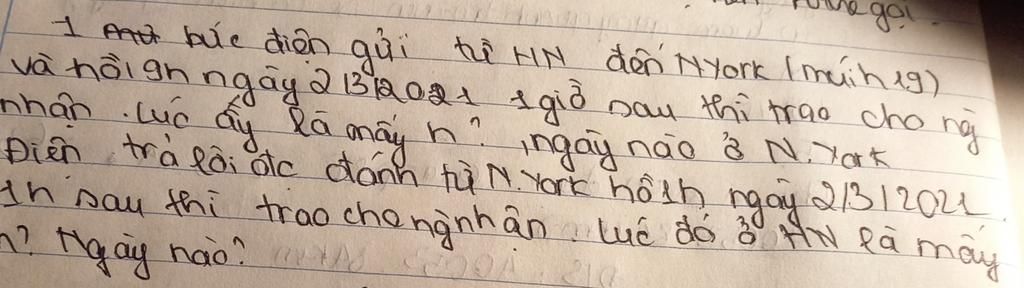 gọi.
1 bức điện gửi từ HN đến NYork (múi h 19)
và hồi 9h ngày 2/3/2021 1 giờ sau thì trao cho ng
nhận. Lúc ấy là mấy h?, ngày nào ở N.York
Điện trả lời đtc đánh từ N.York hồi 1h ngày 2/3/2021.
1h sau thì trao cho ng nhận. Lúc đó ở HN là mấy
h? Ngày nào?